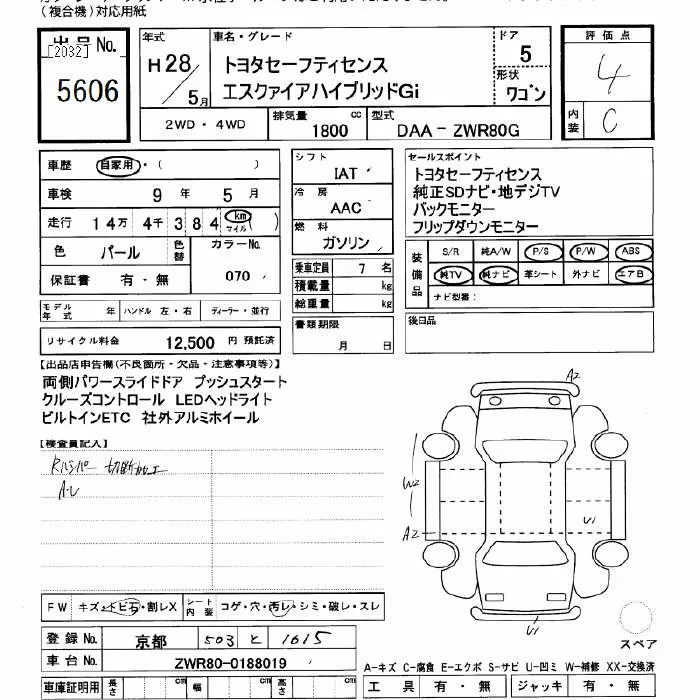 (複合機)対応用紙
出品No.
[2032]
5606
年式
H28/5月
車名・グレード
トヨタセーフティセンス
エスクァイアハイブリッドGi
ドア
5
形状
ワゴン
評価点
4
内装
C
2WD・4WD
排気量 1800 cc
型式 DAA-ZWR80G
車歴 自家用・( )
車検 9年 5月
走行 14万 4千 384 km マイル( )
色 パール
色替
カラーNo. 070
保証書 有・無
モデル年式 年 ハンドル 左・右 ディーラー・並行
リサイクル料金 12,500 円 預託済
シフト IAT
冷房 AAC
燃料 ガソリン
乗車定員 7 名
積載量 kg
総重量 kg
書類期限
月 日
セールスポイント
トヨタセーフティセンス
純正SDナビ・地デジTV
バックモニター
フリップダウンモニター
装備品
S/R 純A/W P/S P/W ABS
純TV 純ナビ 革シート 外ナビ エアB
ナビ型番:
後日品
【出品店申告欄(不良箇所・欠品・注意事項等)】
両側パワースライドドア プッシュスタート
クルーズコントロール LEDヘッドライト
ビルトインETC 社外アルミホイール
【検査員記入】
Rバンパー 切断加工
A・U
A2
W2
A2
U1
U1
FW キズ・トビ石・割レX
シート内装 コゲ・穴・汚レ・シミ・破レ・スレ
スペア
登録No. 京都 503 と 1615
車台No. ZWR80-0188019
A-キズ C-腐食 E-エクボ S-サビ U-凹ミ W-補修 XX-交換済
車庫証明用 長さ cm 幅 cm 高さ cm
工具 有・無 ジャッキ 有・無